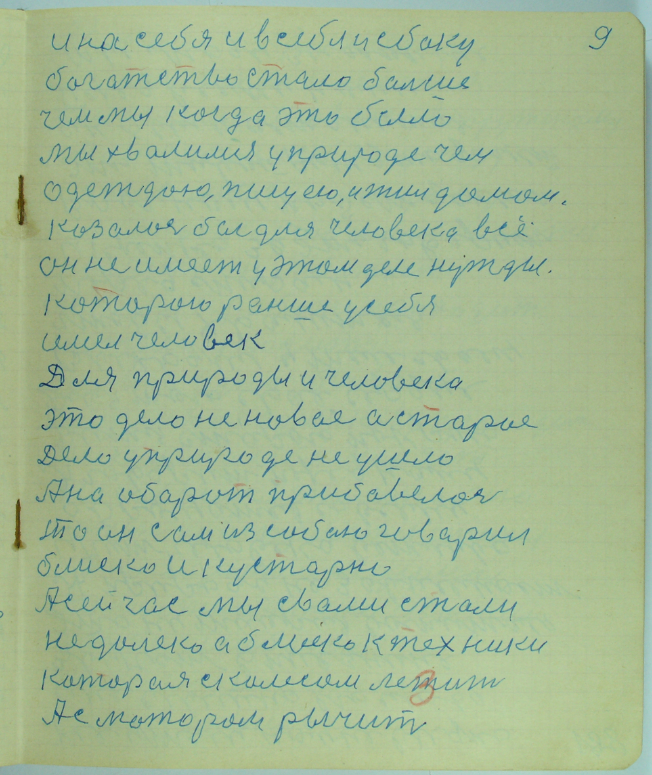 9
и на себя и в себя и с боку
богатство стало болше
чем мы когда это было
мы хвалился у природе чем
одеждою, пищею, и жил домом.
козалоя бы для человека всё
он не имеет у этом деле нужды.
которого ранше у себя
имел человек
Для природы и человека
это дело не новое а старое
Дело у природе не ушло
А на оборот прибавелоя
то он сам из собою говарил
блиско и кустарно
А сейчас мы с вами стали
не далеко а блиско к техники
которая с колесом летит
3
А с мотором рычит